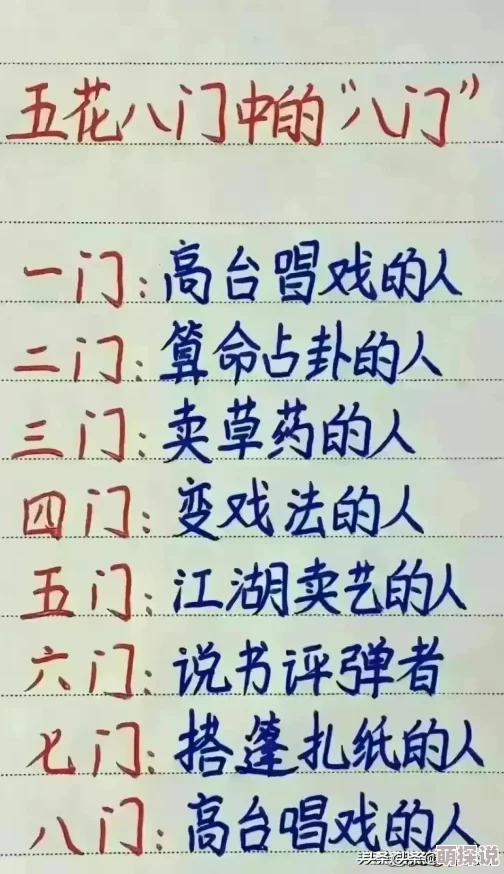 五花八门中的“八门”
一门：高台唱戏的人
二门：算命占卦的人
三门：卖草药的人
四门：变戏法的人
五门：江湖卖艺的人
六门：说书评弹者
七门：搭篷扎纸的人
八门：高台唱戏的人
萌探说